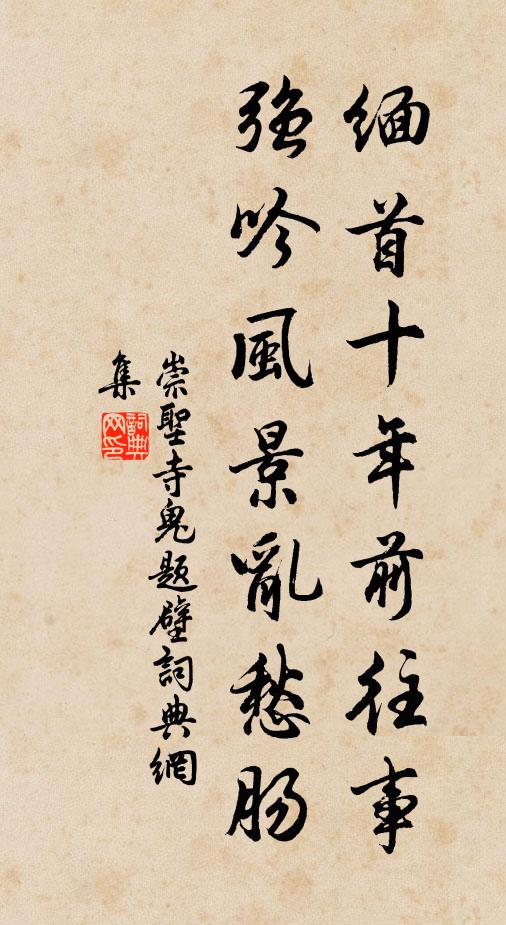 缅首十年前往事
强吟風景亂愁肠
崇聖寺鬼题壁詞典網
集
詞典网印